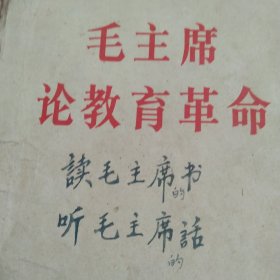 毛主席
论教育革命
読毛主席的书
听毛主席的話